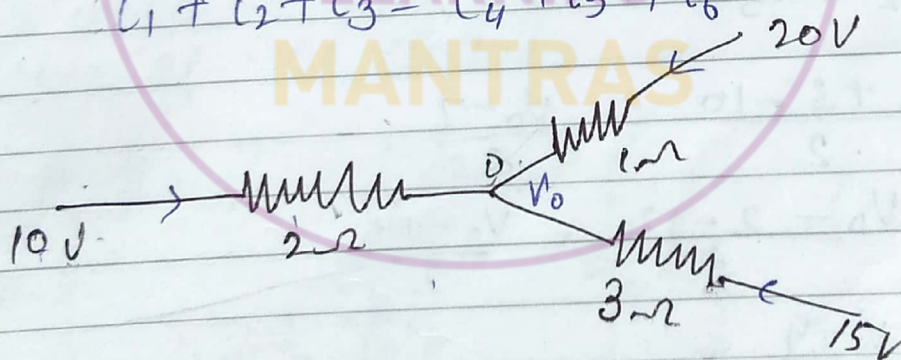 i1 + i2 + i3 = i4 + i5 + i6
MANTRAS
20V
1Ω
O
V0
10V
2Ω
3Ω
15V